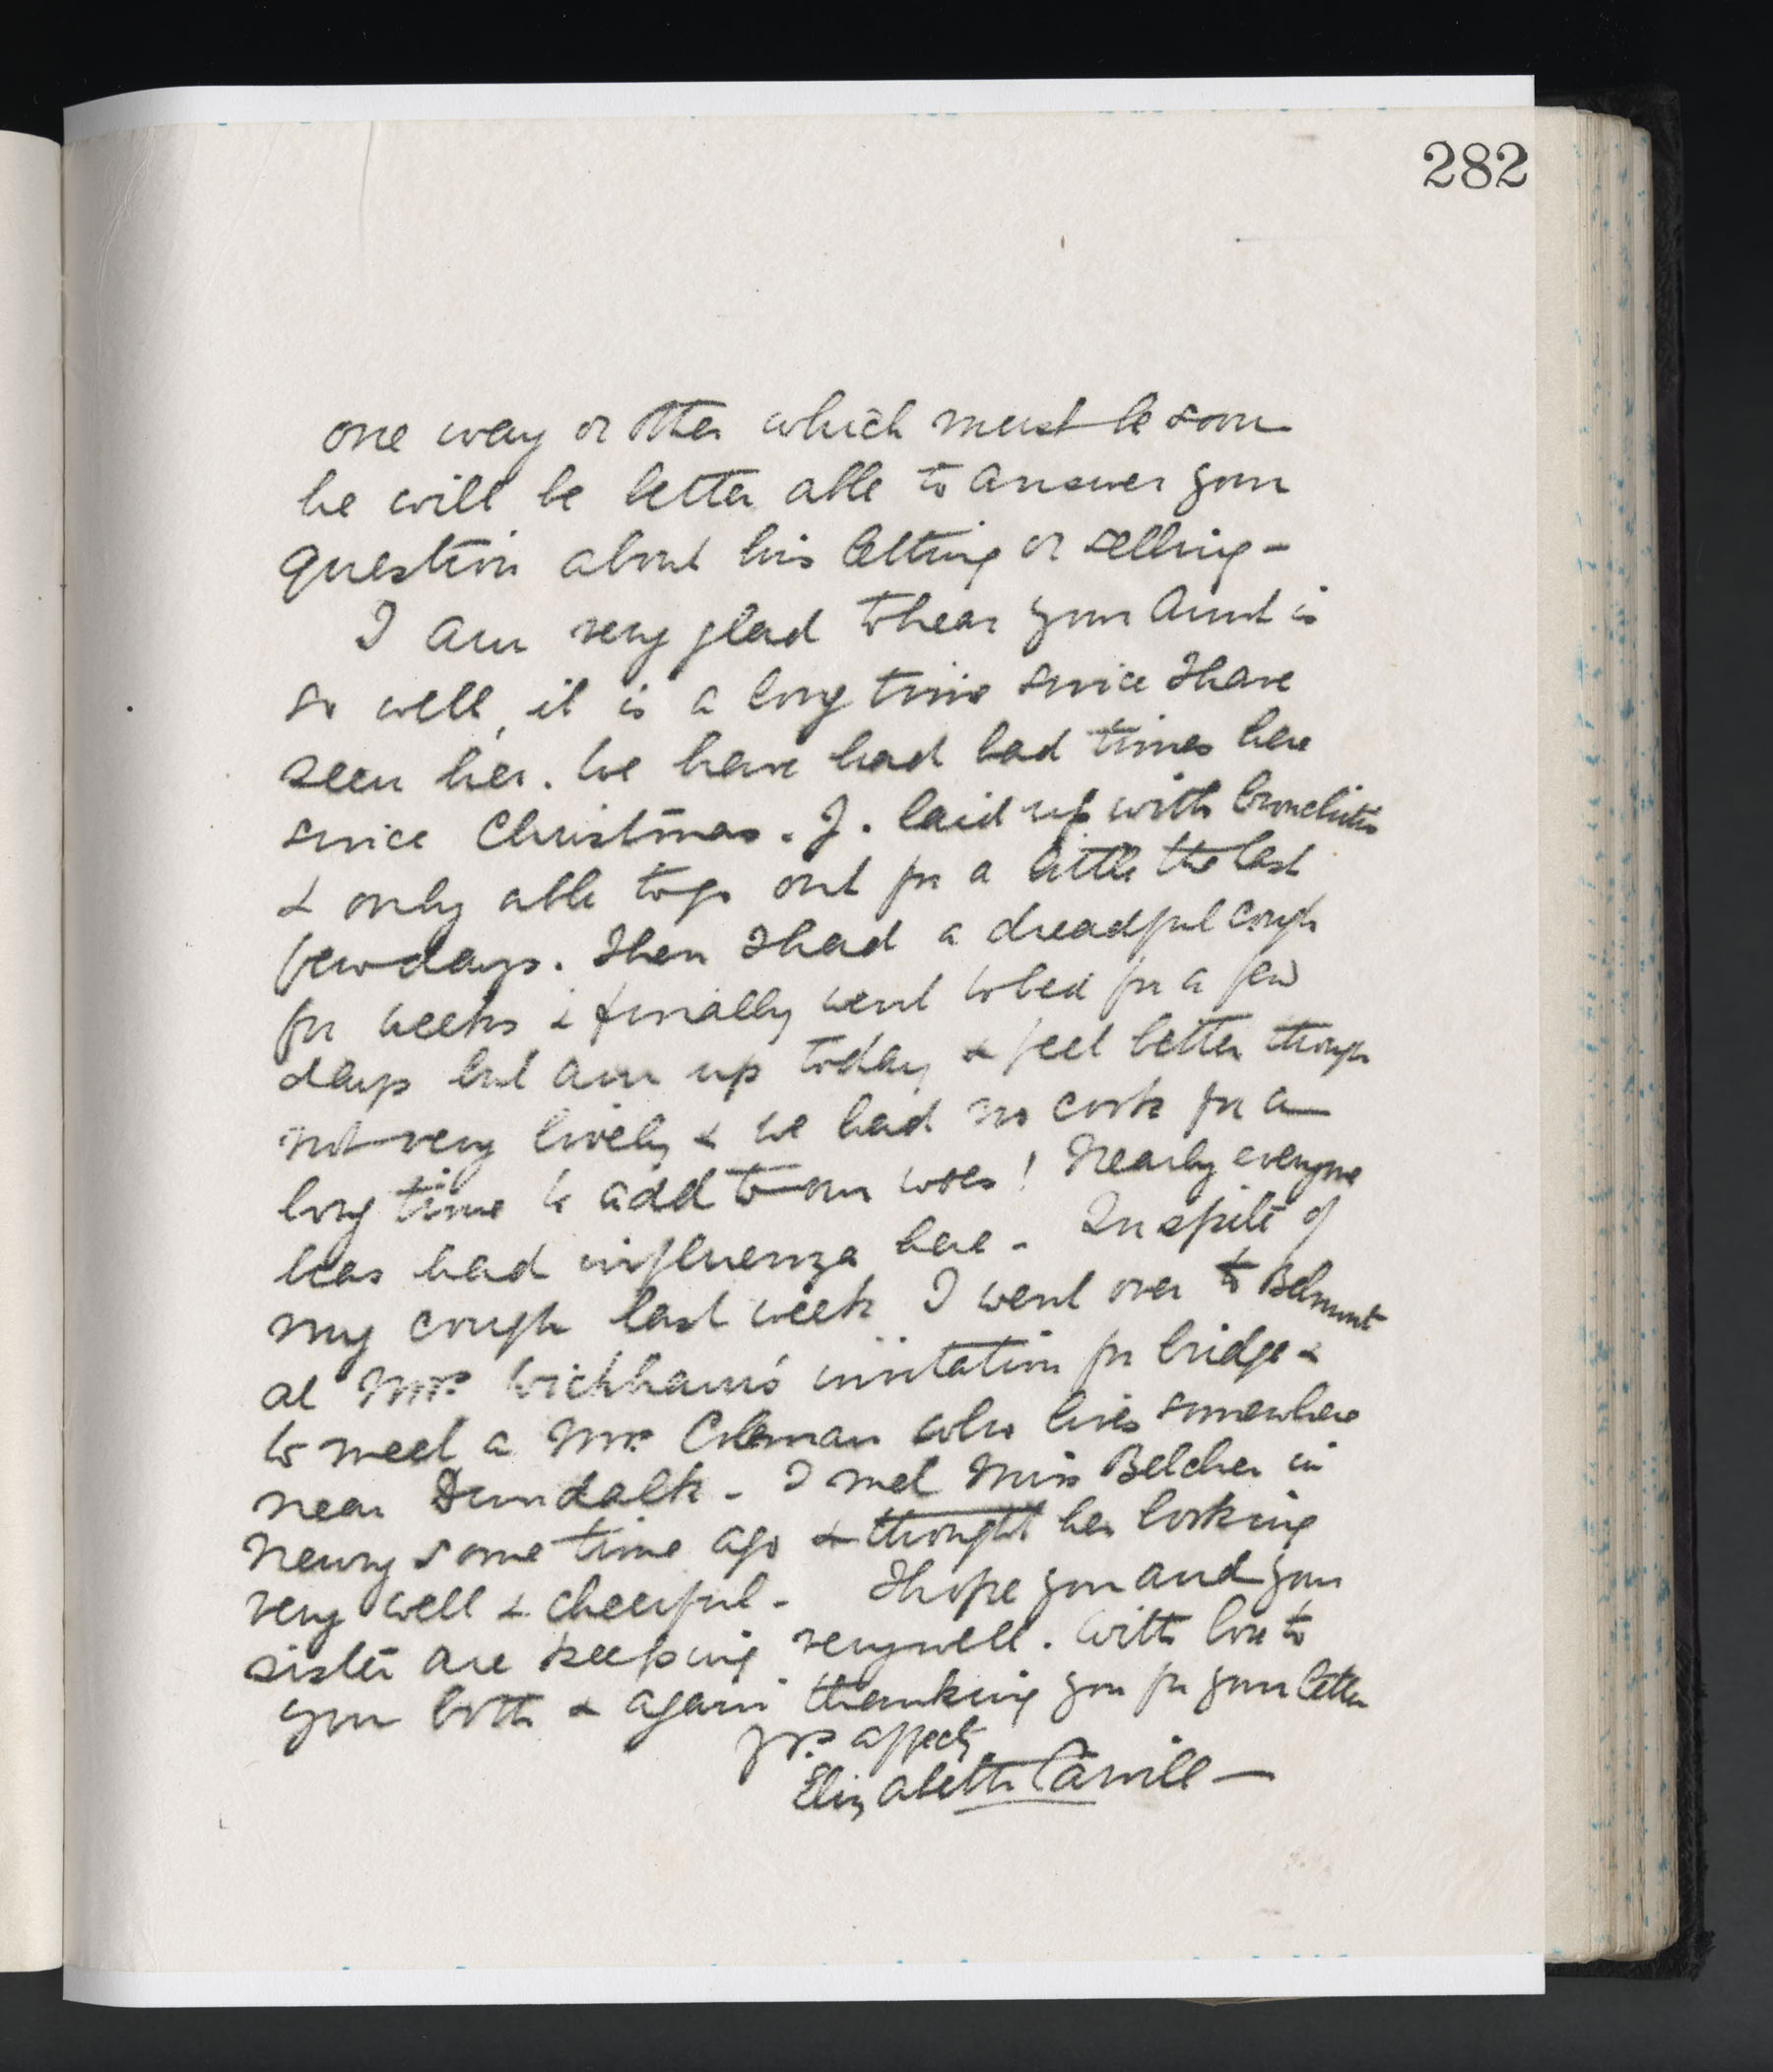 282
one way or other which must be soon
he will be better able to answer your
question about his letting or selling -
I am very glad to hear your Aunt is
so well, it is a long time since I have
seen her. We have had bad times here
since Christmas. J. laid up with bronchitis
& only able to go out for a little the last
few days. Then I had a dreadful cough
for weeks & finally went to bed for a few
days but am up today & feel better though
not very lively & we had no cook for a
long time to add to our woes! Nearly everyone
has had influenza here - In spite of
my cough last week I went over to Belmont
at Mrs. Wickham's invitation for bridge &
to meet a Mrs. Coleman who lives somewhere
near Dundalk - I met Miss Belcher in
Newry some time ago & thought her looking
very well & cheerful - I hope you and your
sister are keeping very well. With love to
you both & again thanking you for your letter
Yrs. affectly
Elizabeth Carvill -